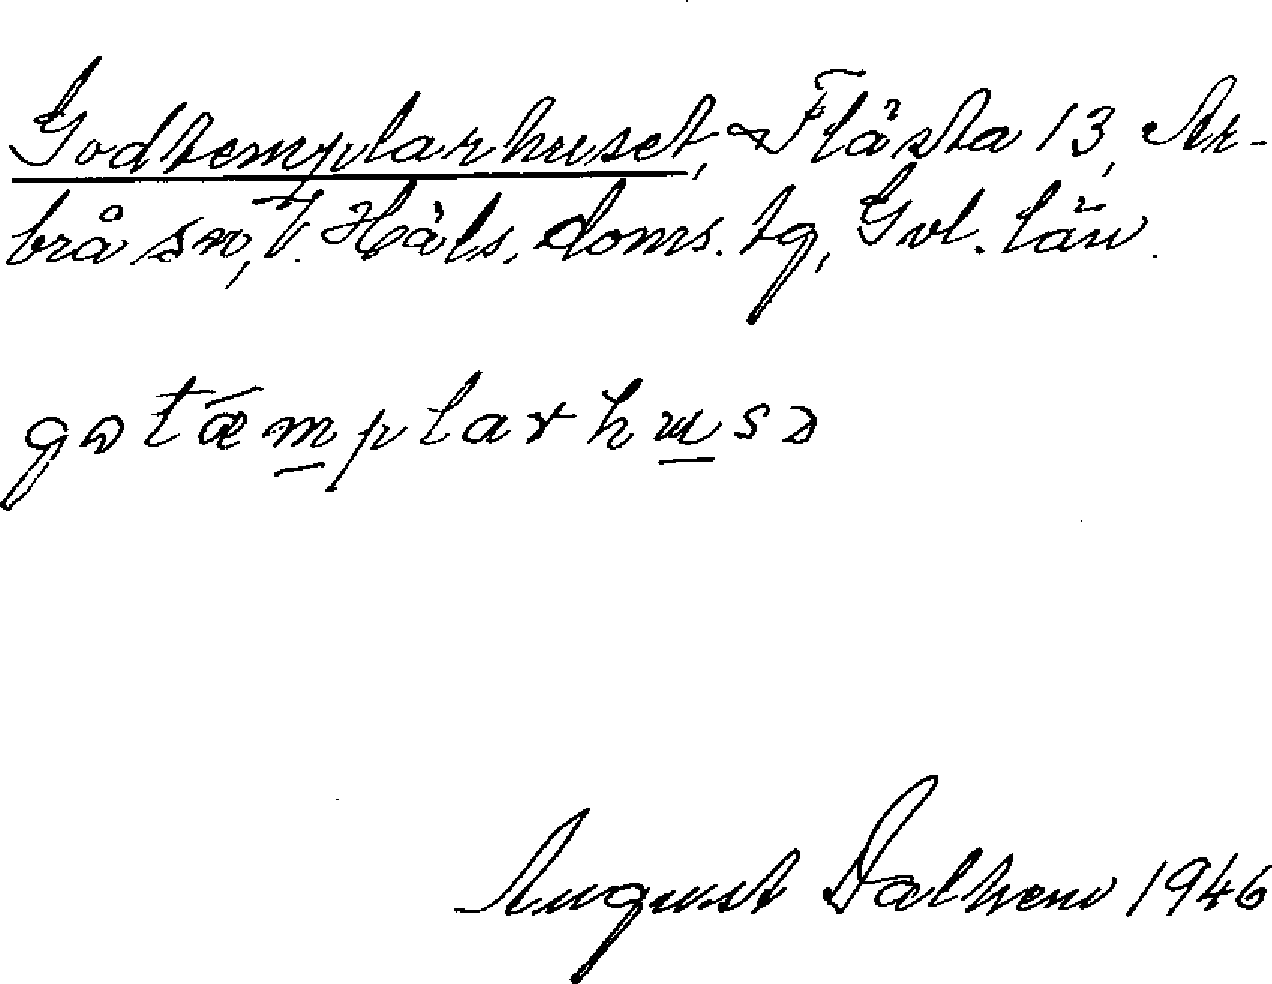 Godtemplarhuset, Flästa 13, Ar-
brå sn, V. Häls. doms. tg, Gvl. län.
gotæmplarhusə
August Dalhem 1946